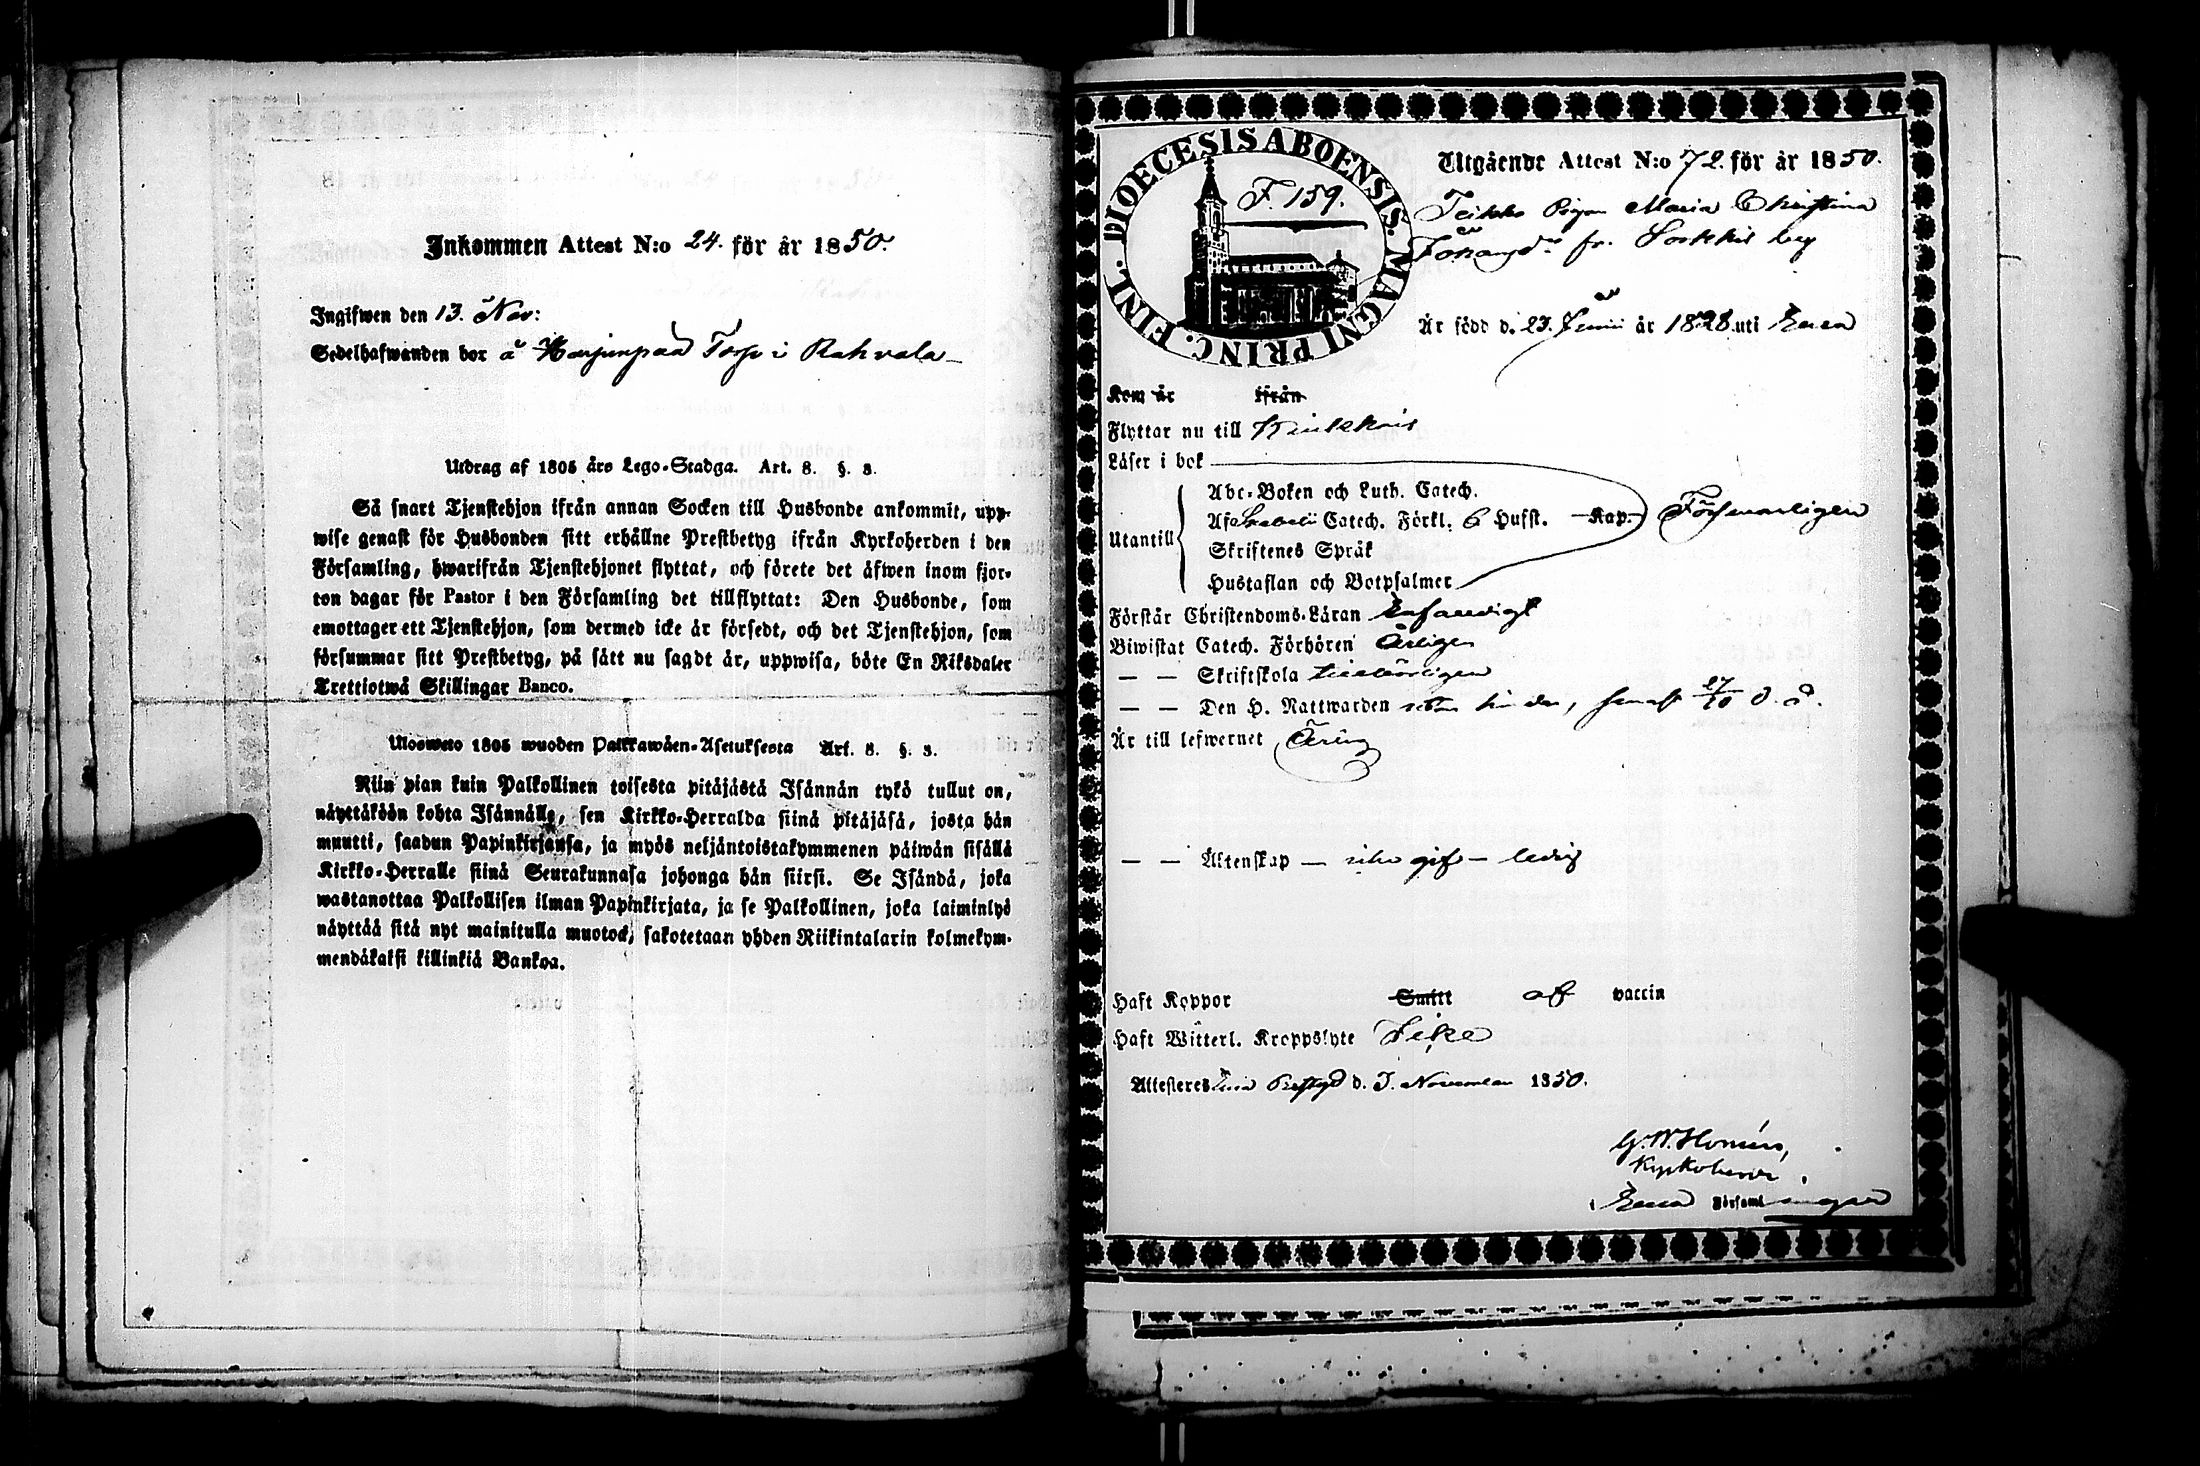 Inkommen Attest N:o 24. för år 1850.
Ingifwen den 13. Nov:
Sedelhafwanden bor å Harjunpää Torp i Rahvala
Utdrag af 1805 års Lego-Stadga. Art. 8. §. 3.
Så snart Tjenstehjon ifrån annan Socken till Husbonde ankommit, upp-
wise genast för Husbonden sitt erhållne Prestbetyg ifrån Kyrkoherden i den
Församling, hwarifrån Tjenstehjonet flyttat, och förete det äfwen inom fjor-
ton dagar för Pastor i den Församling det tillflyttat: Den Husbonde, som
emottager ett Tjenstehjon, som dermed icke är försedt, och det Tjenstehjon, som
försummar sitt Prestbetyg, på sätt nu sagdt är, uppwisa, böte En Riksdaler
Trettiotwå Skillingar Banco.
Ulosweto 1805 wuoden Palkkawäen-Asetuksesta Art. 8. §. 3.
Niin pian kuin Palkollinen toisesta pitäjästä Isännän tykö tullut on,
näyttäköön kohta Isännälle, sen Kirkko-Herralda siinä pitäjäsä, josta hän
muutti, saadun Papinkirjansa, ja myös neljäntoistakymmenen päiwän sisällä
Kirkko-Herralle siinä Seurakunnasa johonga hän siirsi. Se Isändä, joka
wastanottaa Palkollisen ilman Papinkirjata, ja se Palkollinen, joka laiminlyö
näyttää sitä nyt mainitulla muotoa, sakotetaan yhden Riikintalarin kolmekym-
mendäkaksi killinkiä Bankoa.
DIOECESIS ABOENSIS. MAGNI PRINC. FINL.
F. 159.
Utgående Attest N:o 72. för år 1850.
Pigan Maria Christina
fr. Sorkkis by
Är född d. 23. Junii år 1828. uti Eura
Kom år ifrån
Flyttar nu till Kiukkais
Läser i bok
Utantill
Abc-Boken och Luth. Catech.
Af Svebelii Catech. Förkl. 6 Hufst. Kap. Försvarligen
Skriftenes Språk
Hustaflan och Botpsalmer
Förstår Christendoms-Läran Enfaldigt
Biwistat Catech. Förhören Årligen
— — Skriftskola
— — Den H. Nattwarden senast 27/10 d. å.
Är till lefwernet Ärlig
— — Äktenskap — icke gift — ledig
Haft Koppor Smitt af vaccin
Haft Witterl. Kroppslyte Icke
Attesteres Eura Prestgd d. 3. November 1850.
Kyrkoherde
i Eura Församl